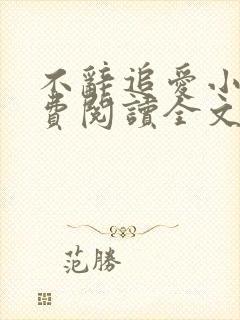 不辭追愛小
費閱讀全文
范勝